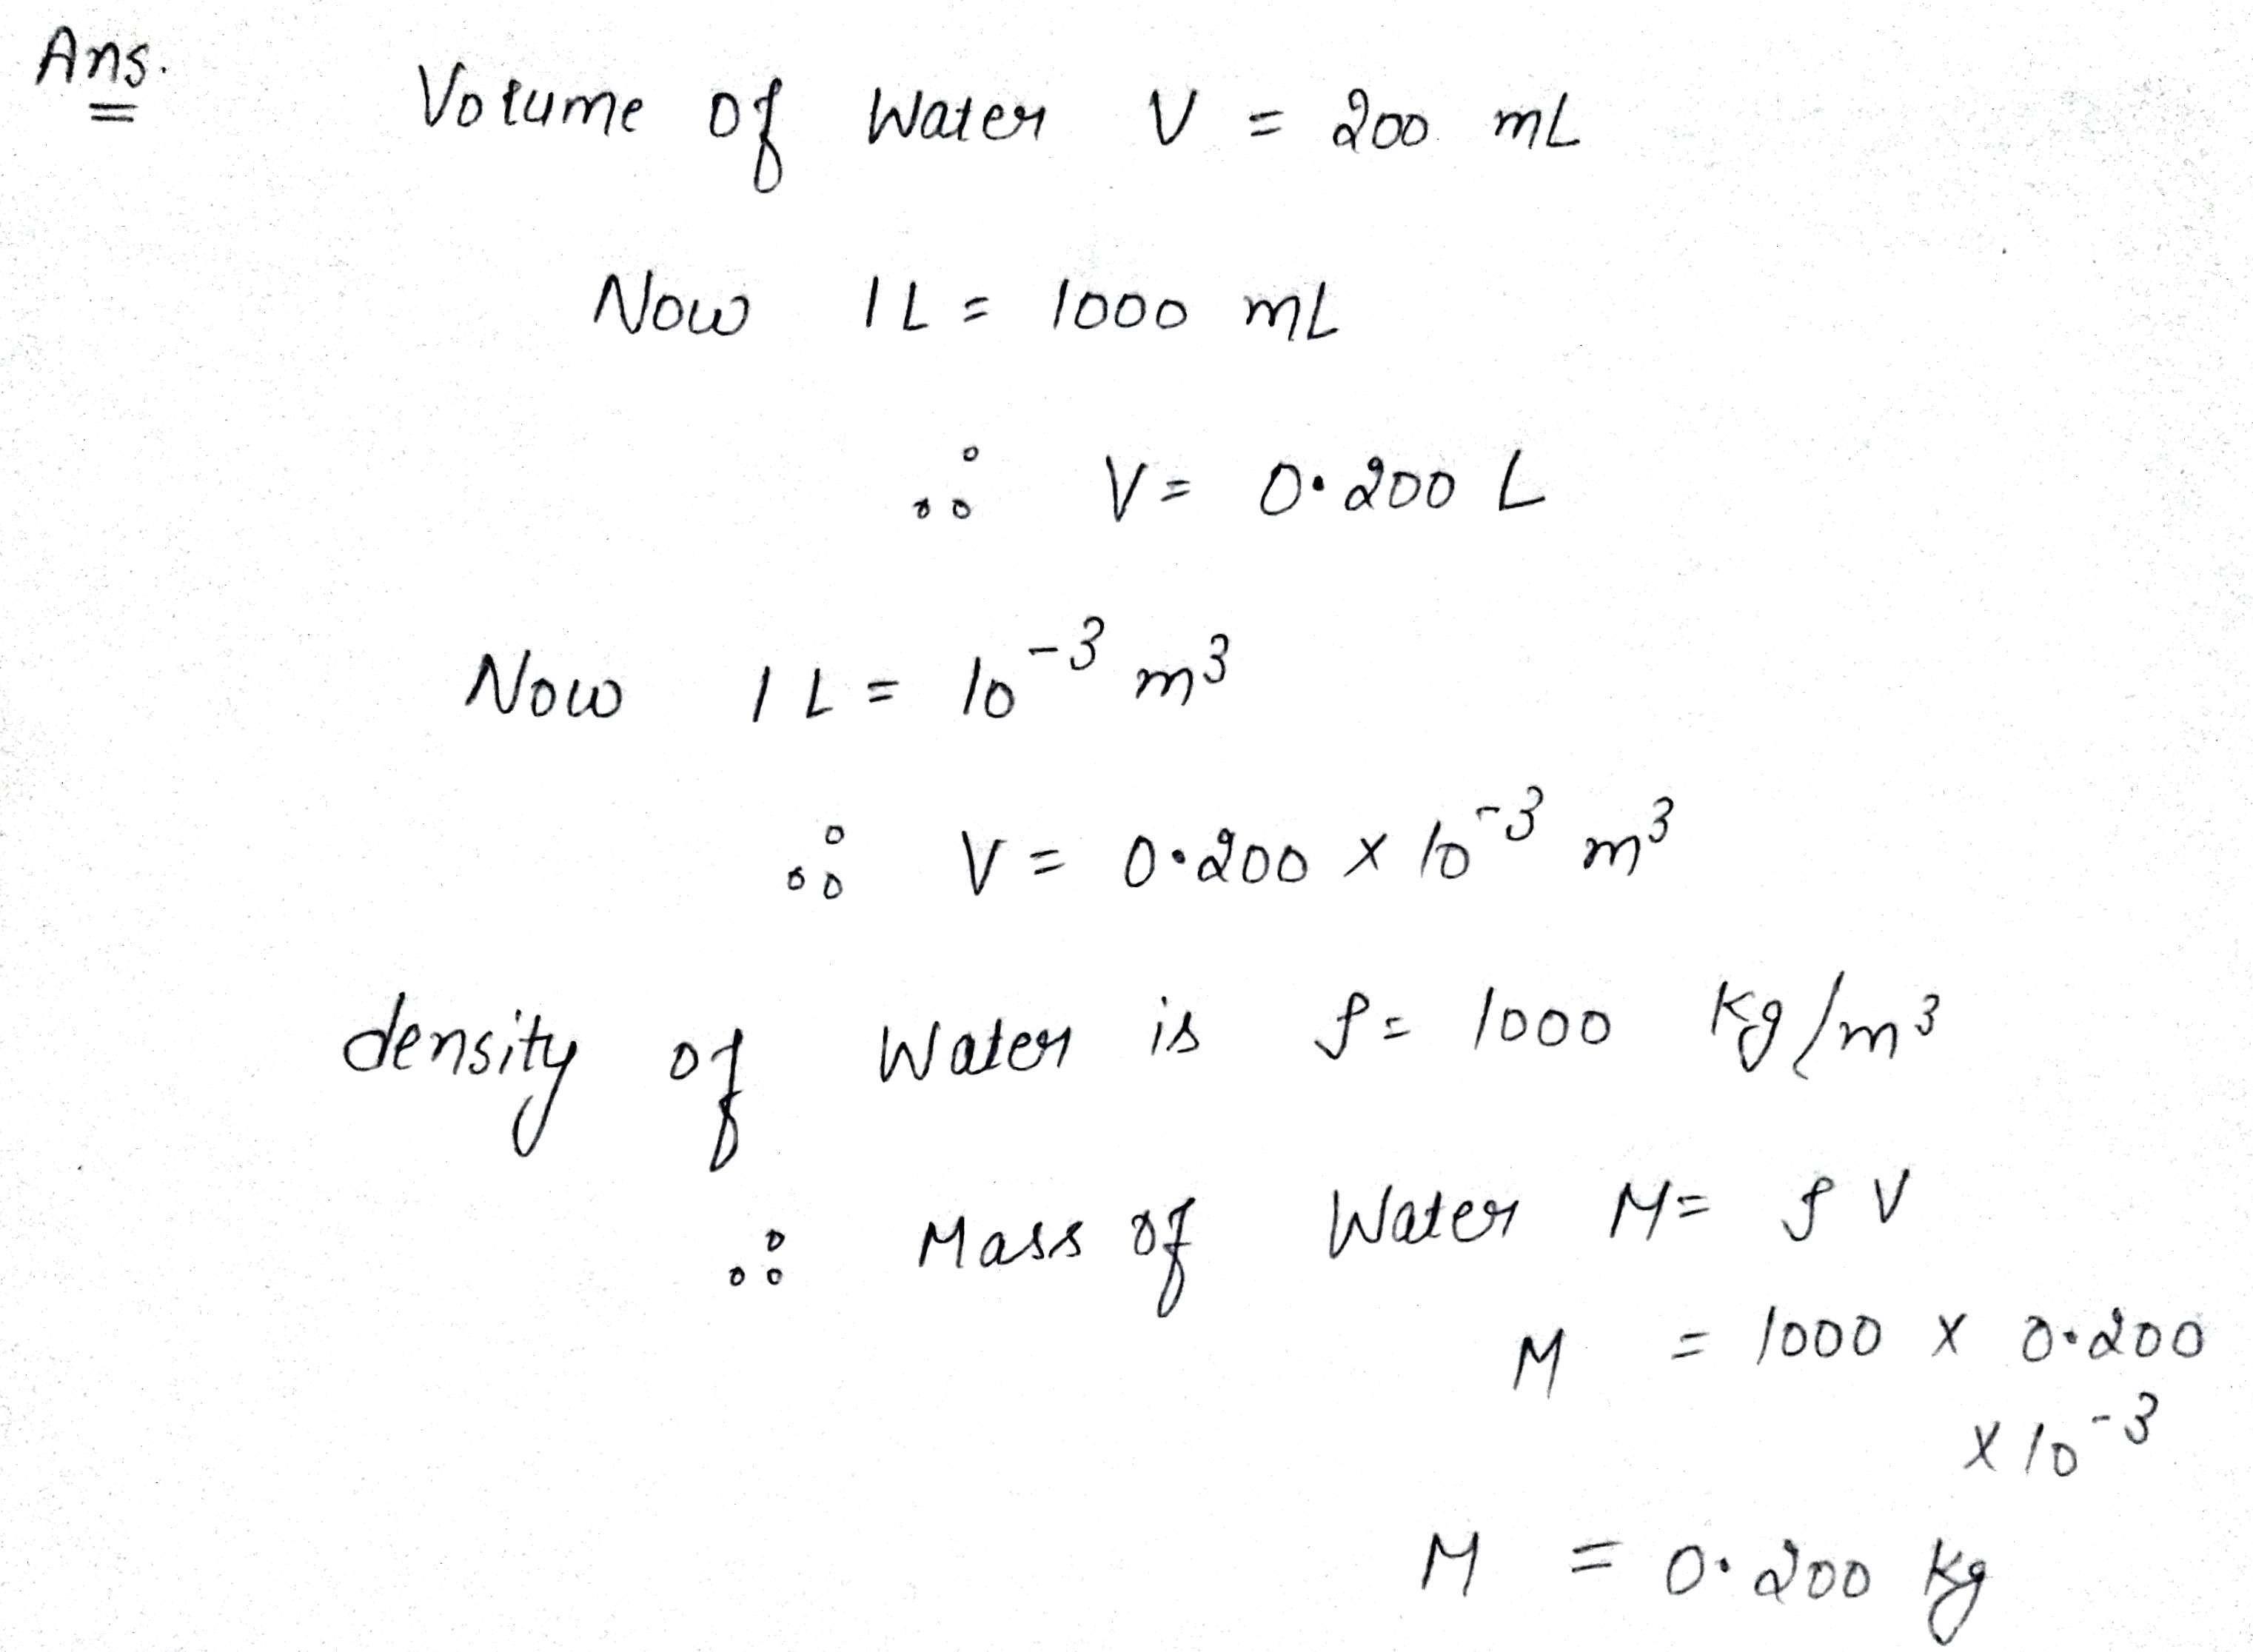 Ans.
Volume of Water V = 200 mL
Now 1L = 1000 mL
∴ V = 0.200 L
Now 1 L = 10⁻³ m³
∴ V = 0.200 × 10⁻³ m³
density of Water is ρ = 1000 Kg/m³
∴ Mass of Water M = ρ V
M = 1000 × 0.200
× 10⁻³
M = 0.200 Kg